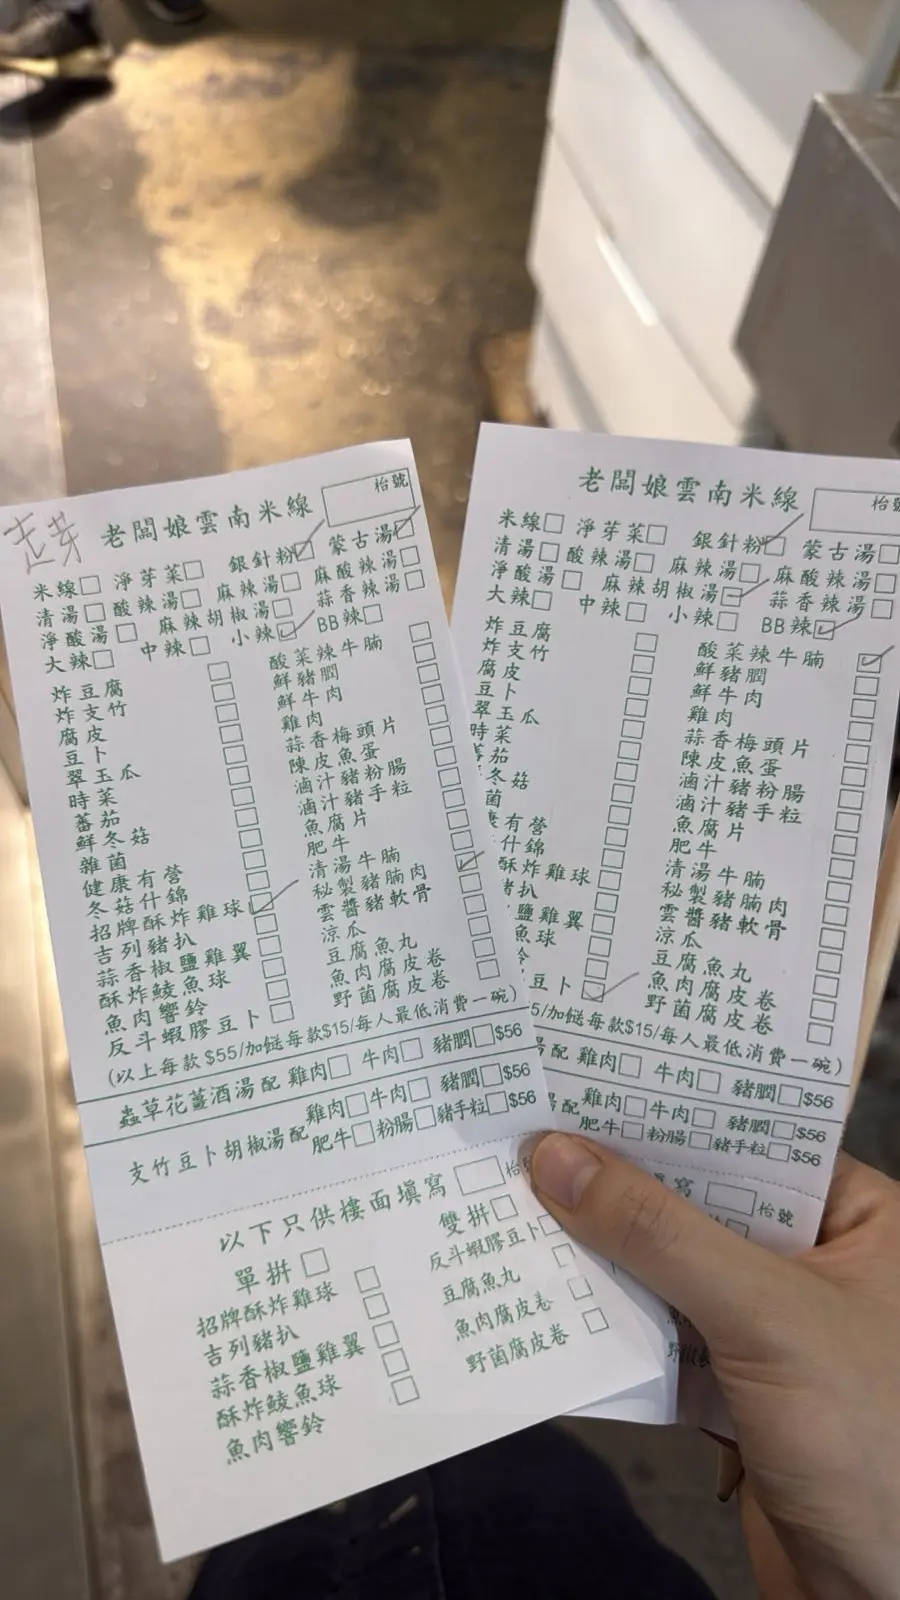 走芽
老闆娘雲南米線 枱號
米線□ 淨芽菜□ 銀針粉☑ 蒙古湯☑
清湯□ 酸辣湯□ 麻辣湯□ 麻酸辣湯□
淨酸湯□ 麻辣胡椒湯□ 蒜香辣湯□
大辣□ 中辣□ 小辣☑ BB辣□
炸豆腐□ 酸菜辣牛腩□
炸支竹□ 鮮豬膶□
腐皮□ 鮮牛肉□
豆卜□ 雞肉□
翠玉瓜□ 蒜香梅頭片□
時菜□ 陳皮魚蛋□
蕃茄□ 滷汁豬粉腸□
鮮冬菇□ 滷汁豬手粒□
雜菌□ 魚腐片□
健康有營□ 肥牛□
冬菇什錦 清湯牛腩
招牌酥炸雞球☑ 秘製豬腩肉
吉列豬扒□ 雲醬豬軟骨
蒜香椒鹽雞翼□ 涼瓜
酥炸鯪魚球□ 豆腐魚丸
魚肉響鈴□ 魚肉腐皮卷
反斗蝦膠豆卜□ 野菌腐皮卷
(以上每款$55/加餸每款$15/每人最低消費一碗)
蟲草花薑酒湯配 雞肉□ 牛肉□ 豬膶□$56
支竹豆卜胡椒湯配 雞肉□牛肉□ 豬膶□$56
肥牛□粉腸□豬手粒□$56
以下只供樓面填寫 □枱號
單拼□ 雙拼□
招牌酥炸雞球□ 反斗蝦膠豆卜□
吉列豬扒□ 豆腐魚丸□
蒜香椒鹽雞翼□ 魚肉腐皮卷□
酥炸鯪魚球□ 野菌腐皮卷□
魚肉響鈴□
老闆娘雲南米線 枱號
米線□ 淨芽菜□ 銀針粉☑ 蒙古湯□
清湯□ 酸辣湯□ 麻辣湯□ 麻酸辣湯□
淨酸湯□ 麻辣胡椒湯☑ 蒜香辣湯□
大辣□ 中辣□ 小辣□ BB辣☑
炸豆腐□ 酸菜辣牛腩☑
炸支竹□ 鮮豬膶□
腐皮□ 鮮牛肉□
豆卜□ 雞肉□
翠玉瓜□ 蒜香梅頭片□
時菜□ 陳皮魚蛋□
茄□ 滷汁豬粉腸□
冬菇□ 滷汁豬手粒□
菌□ 魚腐片□
有營□ 肥牛□
什錦□ 清湯牛腩□
酥炸雞球□ 秘製豬腩肉□
豬扒□ 雲醬豬軟骨□
鹽雞翼□ 涼瓜□
魚球□ 豆腐魚丸□
鈴□ 魚肉腐皮卷□
豆卜☑ 野菌腐皮卷□
55/加餸每款$15/每人最低消費一碗)
湯配 雞肉□ 牛肉□ 豬膶□$56
配 雞肉□牛肉□ 豬膶□$56
肥牛□粉腸□豬手粒□$56
填寫 □枱號